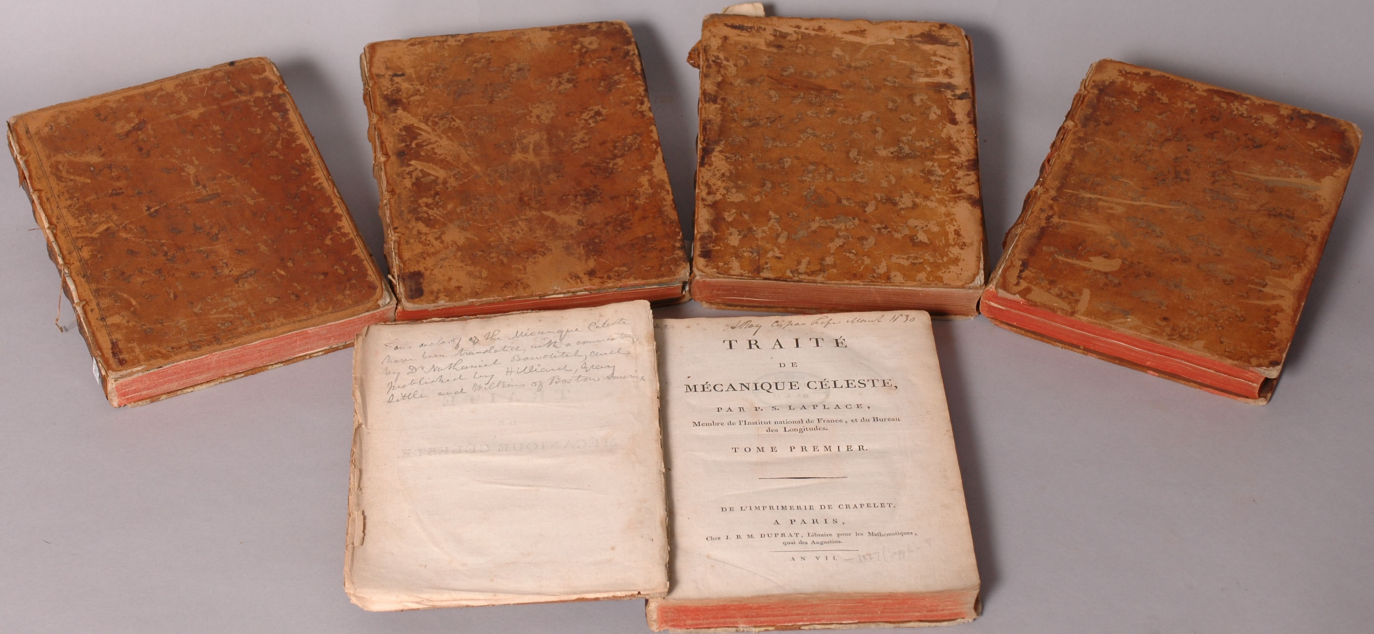 Four vols of the Mécanique Céleste
have been translated, with a commentary
by Dr Nathaniel Bowditch, and
published by Hilliard, Gray
Little and Wilkins of Boston
March 1830
TRAITÉ
DE
MÉCANIQUE CÉLESTE,
PAR P. S. LAPLACE,
Membre de l'Institut national de France, et du Bureau
des Longitudes.
TOME PREMIER.
DE L'IMPRIMERIE DE CRAPELET.
A PARIS,
Chez J. B. M. DUPRAT, Libraire pour les Mathématiques,
quai des Augustins.
AN VII